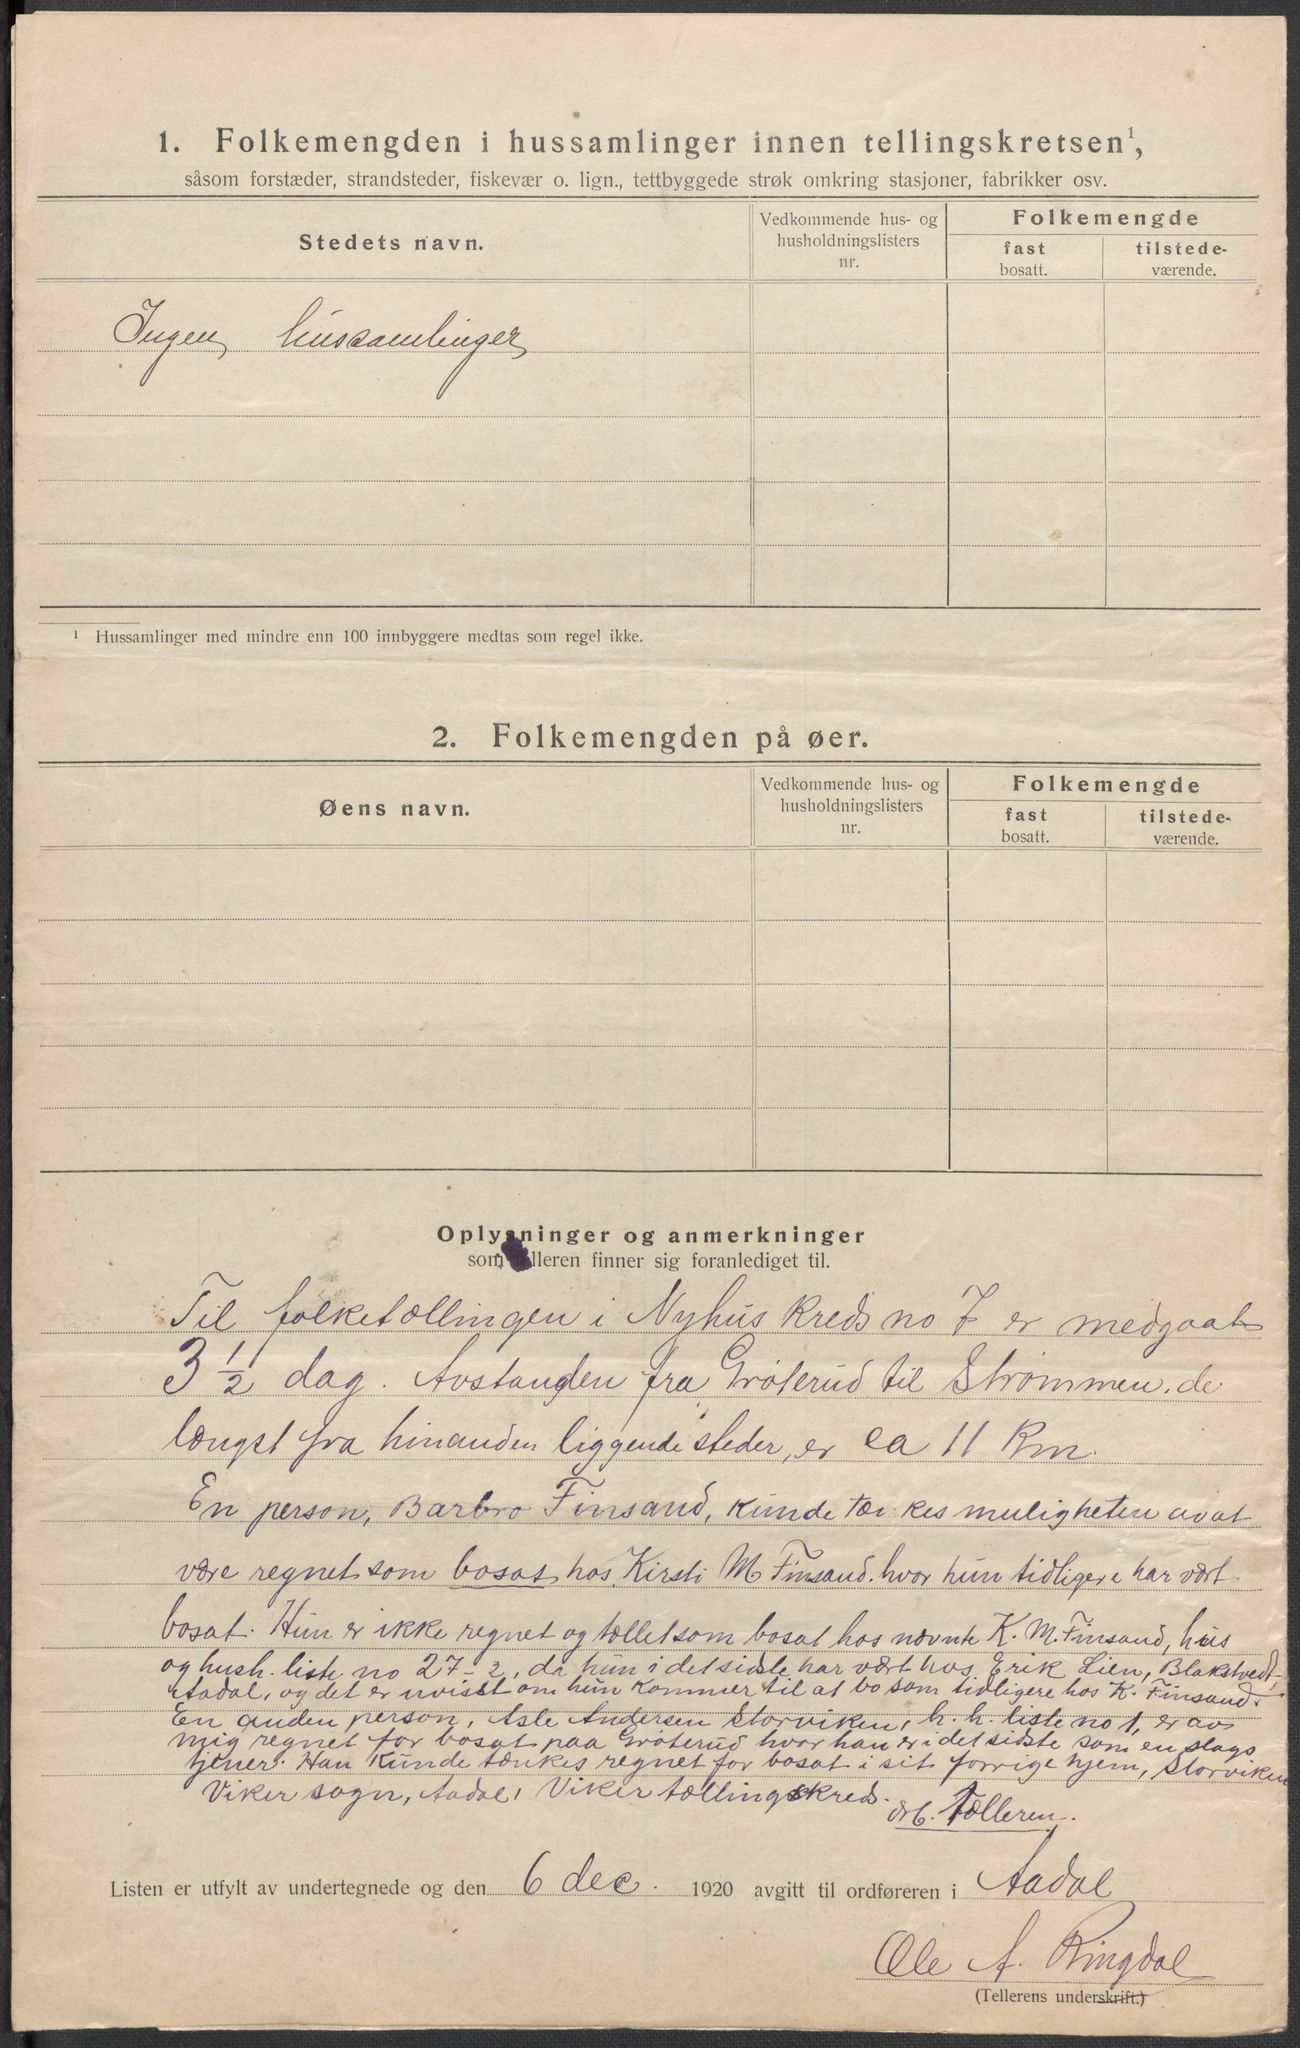 1. Folkemengden i hussamlinger innen tellingskretsen¹,
såsom forstæder, strandsteder, fiskevær o. lign., tettbyggede strøk omkring stasjoner, fabrikker osv.
Stedets navn.
Vedkommende hus- og
husholdningslisters
nr.
Folkemengde
fast
bosatt.
tilstede-
værende.
Ingen hussamlinger
¹ Hussamlinger med mindre enn 100 innbyggere medtas som regel ikke.
2. Folkemengden på øer.
Øens navn.
Vedkommende hus- og
husholdningslisters
nr.
Folkemengde
fast
bosatt.
tilstede-
værende.
Oplysninger og anmerkninger
som telleren finner sig foranlediget til.
Til folketællingen i Nyhus Kreds no 7 er medgaat
3 ½ dag. Avstanden fra Grøterud til Strømmen, de
længst fra hinanden liggende steder, er ca 11 Km.
En person, Barbro Finsand, kunde tænkes muligheten av at
være regnet som bosat hos Kirsti M Finsand, hvor hun tidligere har vært
bosat. Hun er ikke regnet og tællet som bosat hos nævnte K. M. Finsand, hus
og hush. liste no 27-2, da hun i det sidste har vært hos Erik Lien, Blakstvedt,
Aadal, og det er uvisst om hun kommer til at bo som tidligere hos K. Finsand.
En anden person, Asle Andersen Storviken, h. h. liste no 1, er av
mig regnet for bosat paa Grøterud hvor han er i det sidste som en slags
tjener. Han kunde tænkes regnet for bosat i sit forrige hjem, Storviken
Viker sogn, Aadal, Viker tællingskreds.
Tælleren.
Listen er utfylt av undertegnede og den 6 dec. 1920 avgitt til ordføreren i Aadal
Ole A. Ringdal
(Tellerens underskrift.)